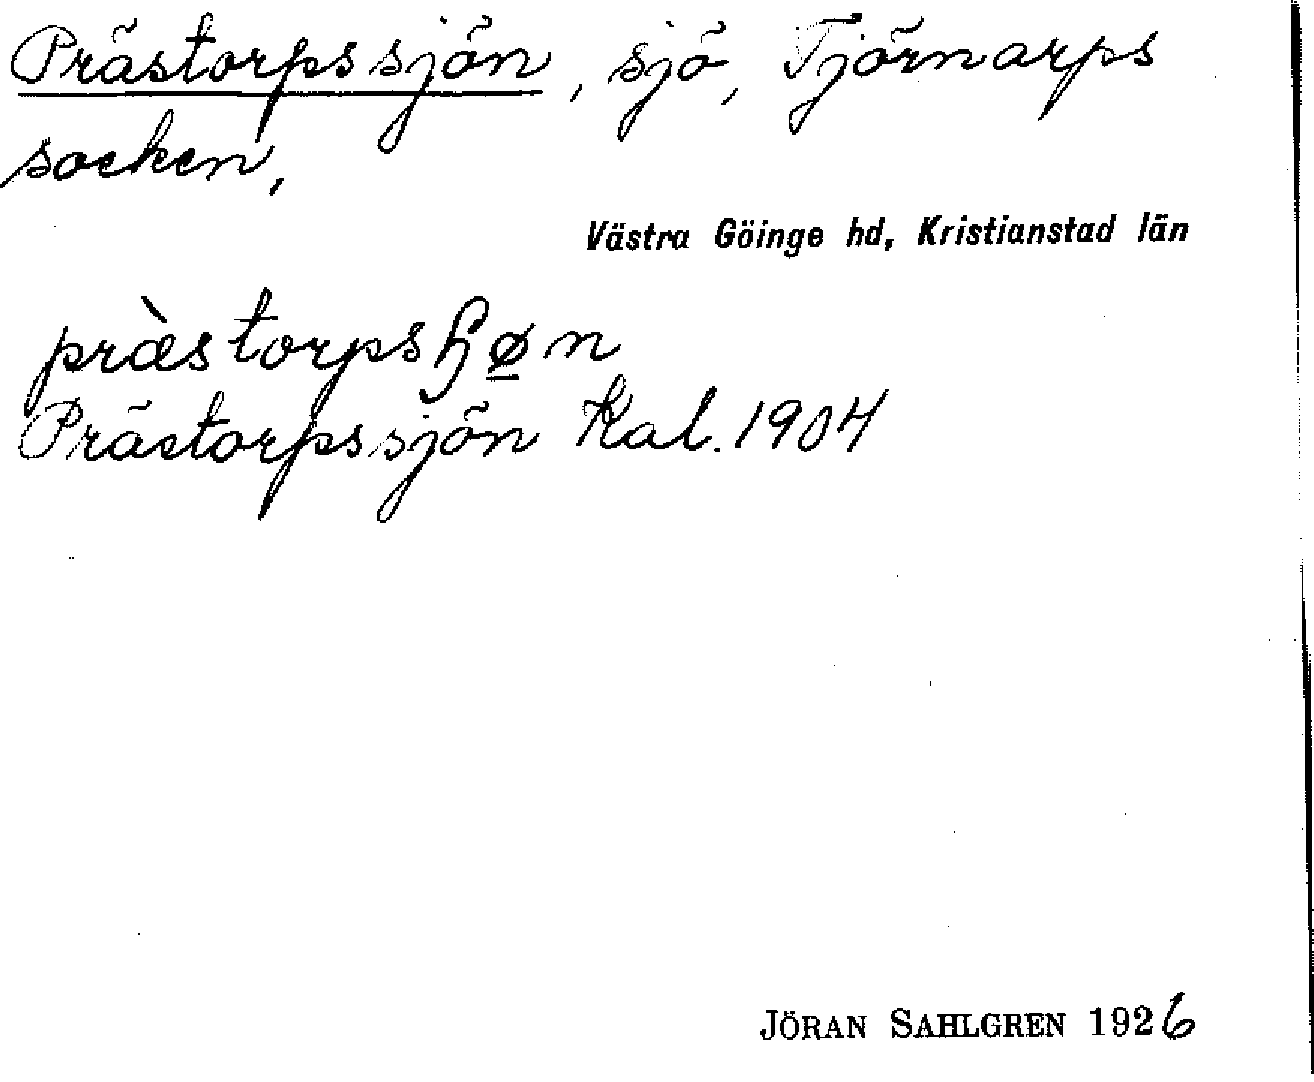 Prästorpssjön, sjö, Tjörnarps
socken,
Västra Göinge hd, Kristianstad län
præ̀storpsɧø̲n
Prästorpssjön Kal. 1904
JÖRAN SAHLGREN 1926